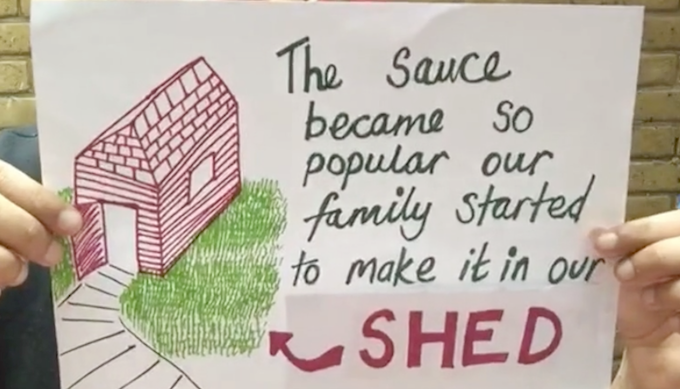 The Sauce
became so
popular our
family started
to make it in our
SHED